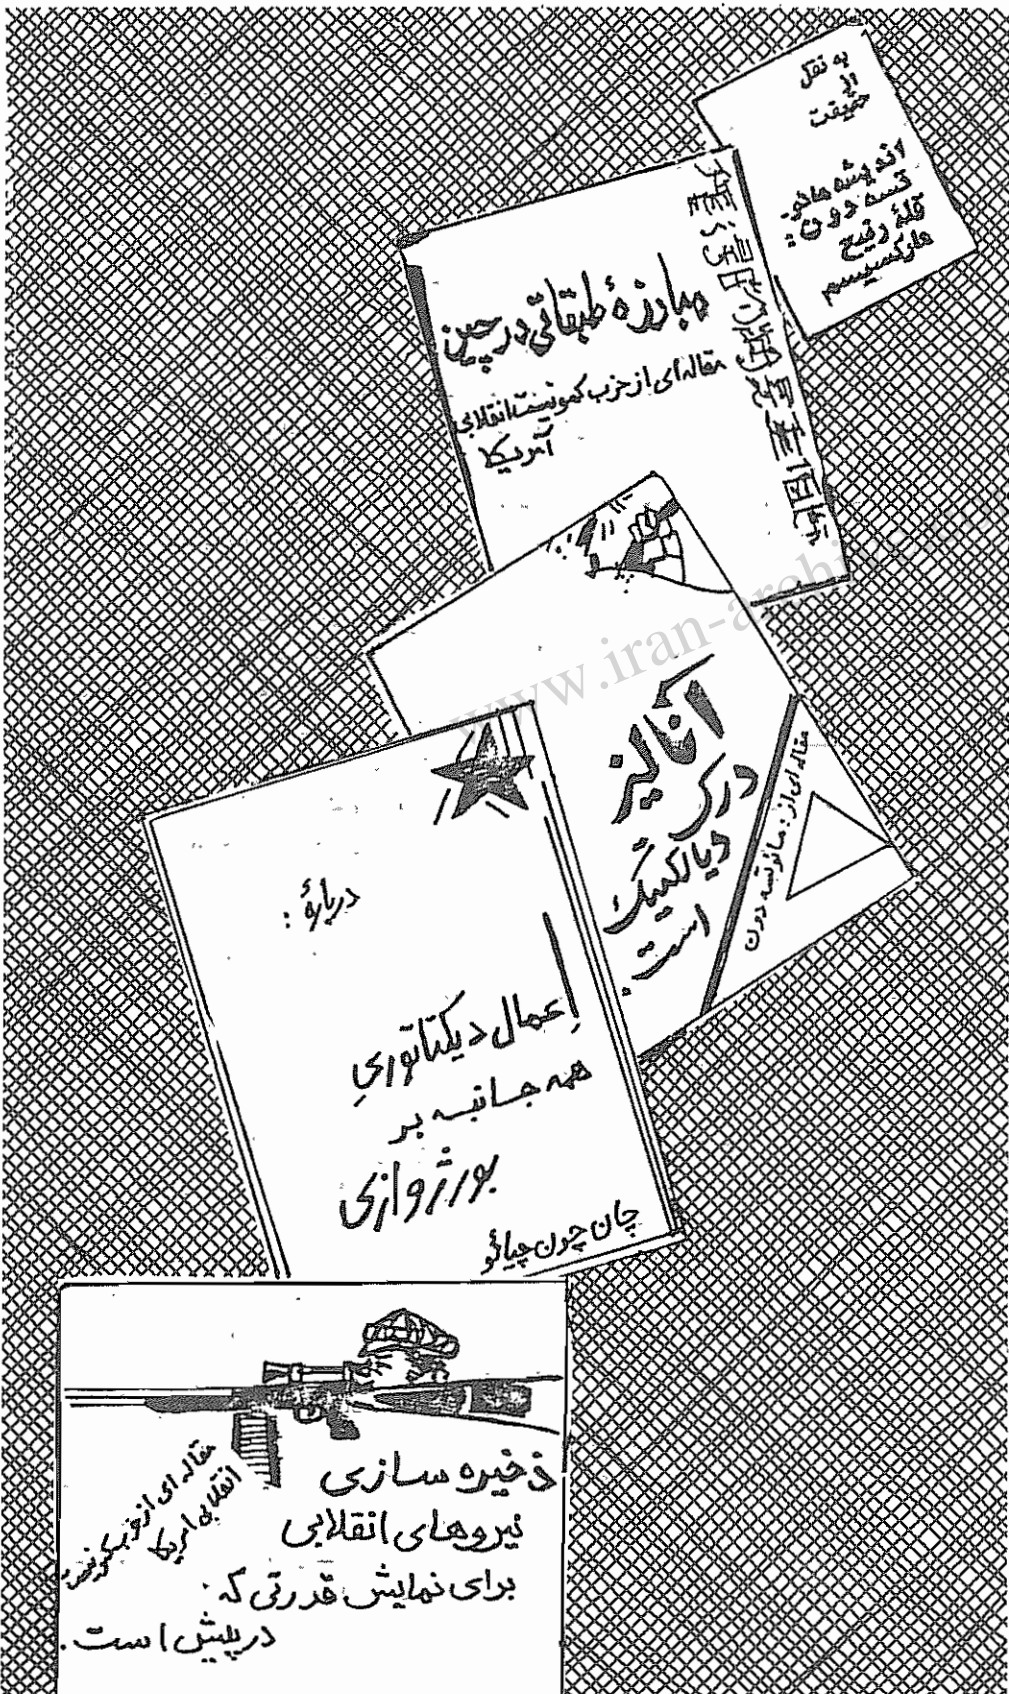 به نقل
از
حقیقت
اندیشه مائو
تسه دون:
قلهٔ رفیع
مارکسیسم
مبارزهٔ طبقاتی در چین
مقاله‌ای از حزب کمونیست انقلابی
آمریکا
آنالیز
درکی
دیالکتیک
است.
مقاله‌ای از: مائوتسه دون
دربارهٔ:
اِعمال دیکتاتوریِ
همه جانبه بر
بورژوازی
چان چون چیائو
ذخیره سازی
نیروهای انقلابی
برای نمایش قدرتی که
در پیش است.
مقاله‌ای از حزب کمونیست
انقلابی آمریکا
www.iran-archi